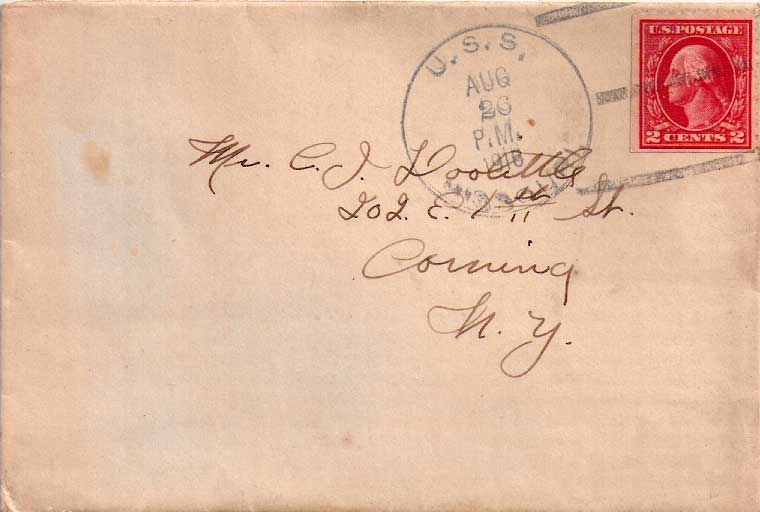 U.S.S.
AUG
26
P.M.
1916
U.S. POSTAGE
2 CENTS 2
Mr. C. J. Doolittle
202 E. 1st St.
Corning
N. Y.